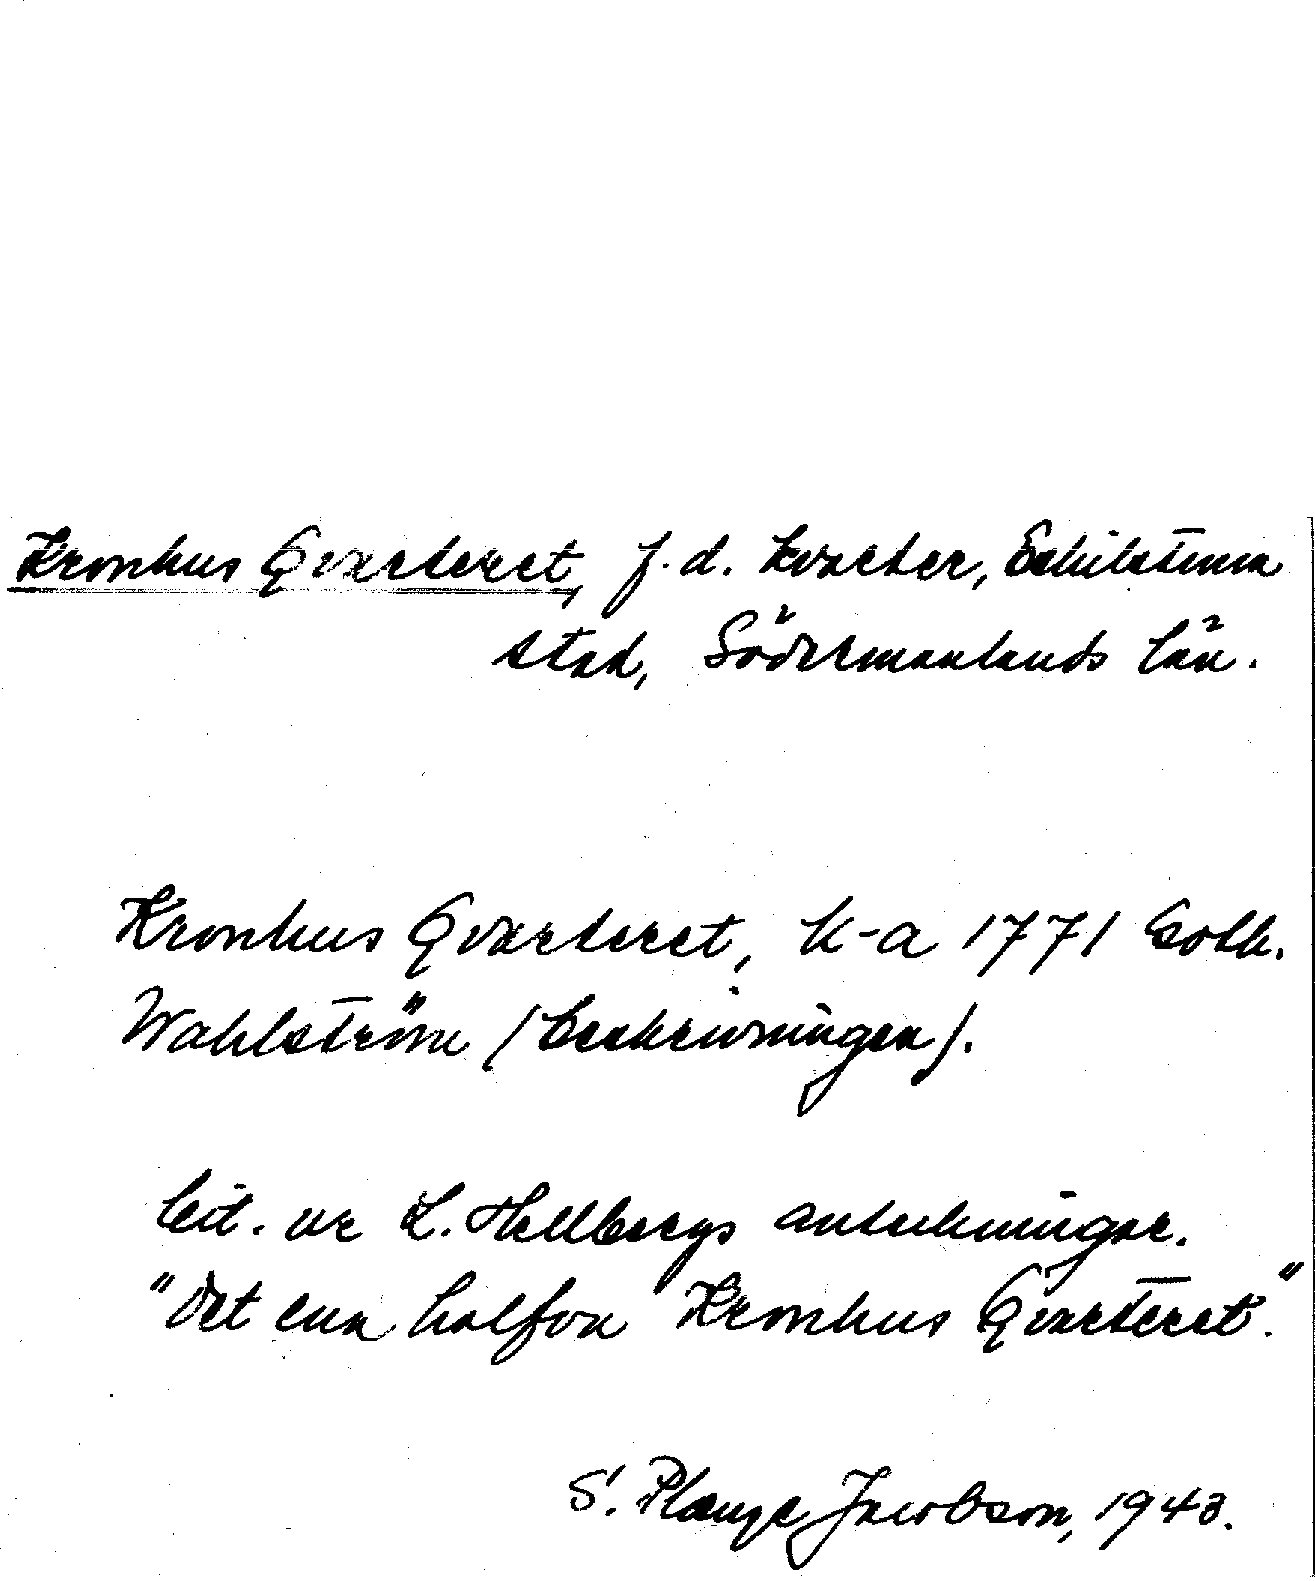 Kronhus Qvarteret, f.d. kvarter, Eskilstuna
stad, Södermanlands län.
Kronhus Qvarteret, k-a 1771 Goth.
Wahlström (beskrivningen).
Cit. ur L. Hellbergs anteckningar.
"Det ena halfva Kronhus Qvarteret".
S. Jacobson, 1943.